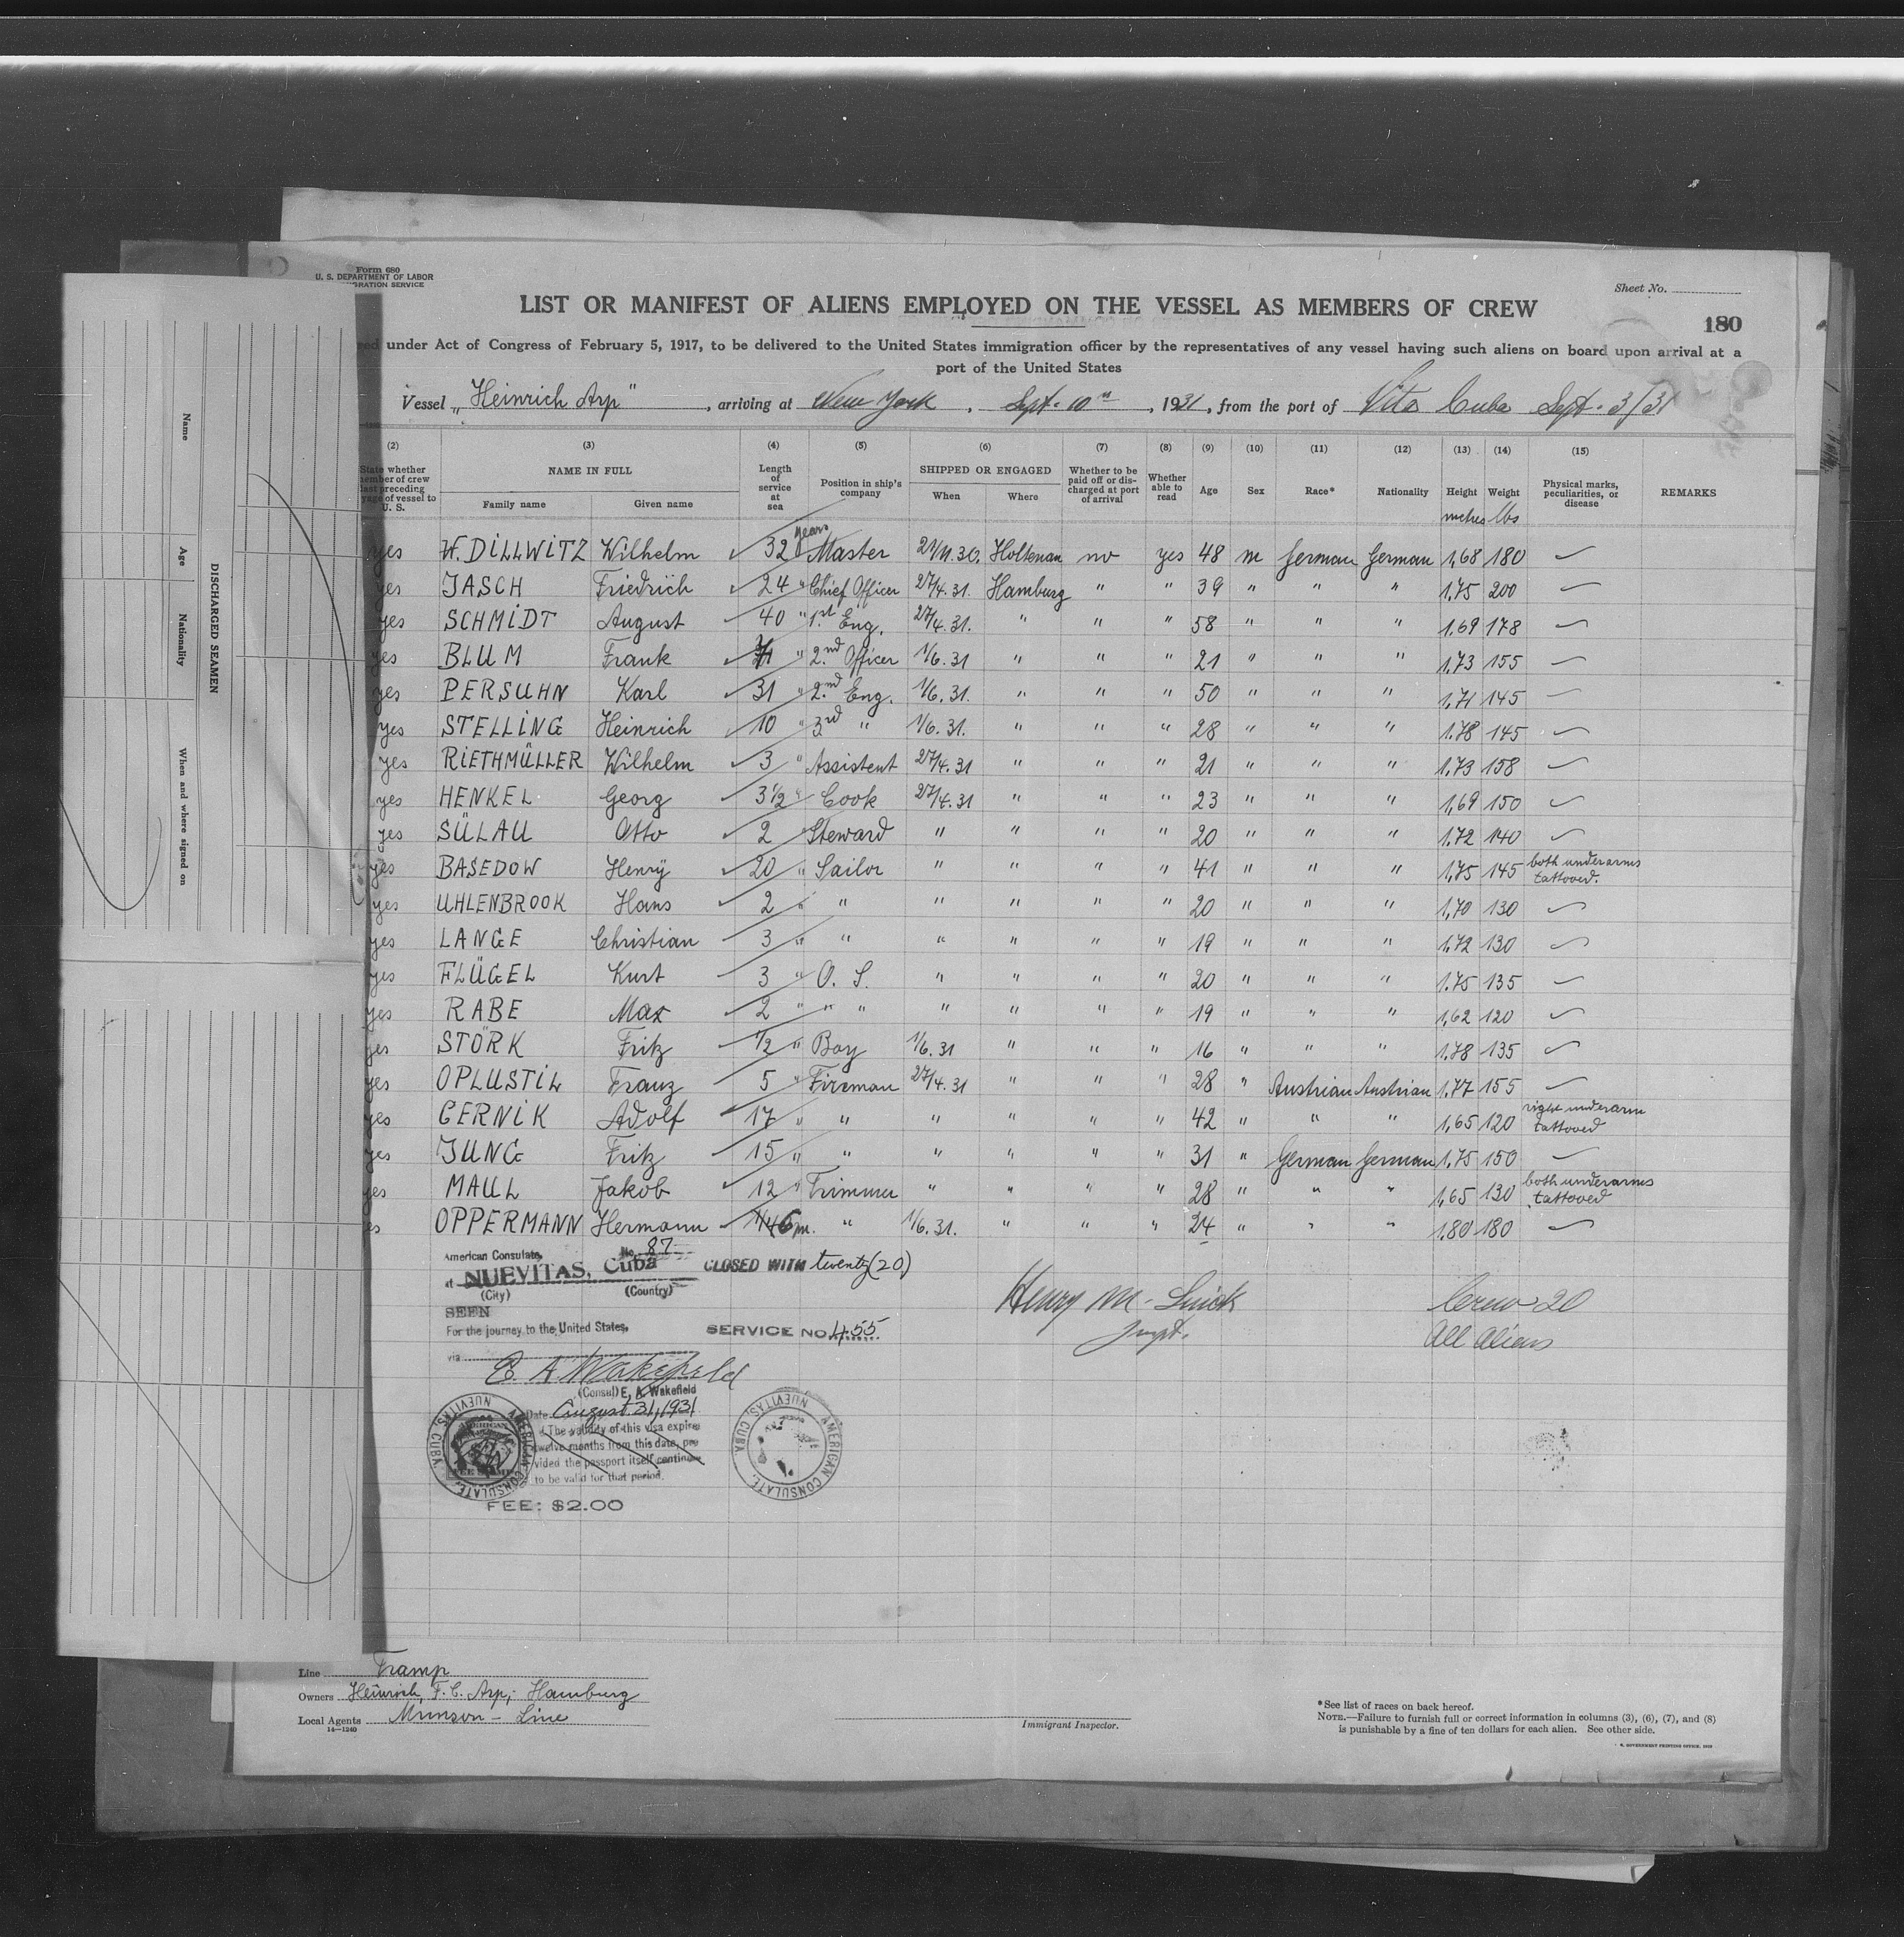 Form 680
U. S. DEPARTMENT OF LABOR
GRATION SERVICE
Sheet No.
LIST OR MANIFEST OF ALIENS EMPLOYED ON THE VESSEL AS MEMBERS OF CREW
180
under Act of Congress of February 5, 1917, to be delivered to the United States immigration officer by the representatives of any vessel having such aliens on board upon arrival at a
port of the United States
Vessel „Heinrich Arp", arriving at New York, Sept. 10th, 1931, from the port of Vita Cuba Sept. 3/31
(2) (3) (4) (5) (6) (7) (8) (9) (10) (11) (12) (13) (14) (15)
State whether member of crew last preceding voyage of vessel to U. S. NAME IN FULL Family name Given name Length of service at sea Position in ship's company SHIPPED OR ENGAGED When Where Whether to be paid off or discharged at port of arrival Whether able to read Age Sex Race* Nationality Height Weight Physical marks, peculiarities, or disease REMARKS
years metres lbs
yes W. DILLWITZ Wilhelm 32 Master 30. Holtenau no yes 48 m German German 1,68 180
yes JASCH Friedrich 24 " Chief Officer 27/4.31. Hamburg " " 39 " " " 1.75 200
yes SCHMIDT August 40 " 1st Eng. 27/4.31. " " " 58 " " " 1.69 178
yes BLUM Frank " 2nd Officer 1/6.31 " " " 21 " " " 1.73 155
yes PERSUHN Karl 31 " 2nd Eng. 1/6.31. " " " 50 " " " 1.71 145
yes STELLING Heinrich 10 " 3rd " 1/6.31. " " " 28 " " " 1.78 145
yes RIETHMÜLLER Wilhelm 3 " Assistent 27/4.31 " " " 21 " " " 1.73 158
yes HENKEL Georg 3 1/2 " Cook 27/4.31 " " " 23 " " " 1,69 150
yes SÜLAU Otto 2 " Steward " " " " 20 " " " 1.72 140
yes BASEDOW Henry 20 " Sailor " " " " 41 " " " 1,75 145 both underarms tattoved.
yes UHLENBROOK Hans 2 " " " " " " 20 " " " 1,70 130
yes LANGE Christian 3 " " " " " " 19 " " " 1,72 130
yes FLÜGEL Kurt 3 " O. S. " " " " 20 " " " 1.75 135
yes RABE Max 2 " " " " " " " 19 " " " 1,62 120
yes STÖRK Fritz 1/2 " Boy 1/6.31 " " " 16 " " " 1.78 135
yes OPLUSTIL Franz 5 " Fireman 27/4.31 " " " 28 " Austrian Austrian 1.77 155
yes CERNIK Adolf 17 " " " " " " 42 " " " 1,65 120 right underarm tattoved
yes JUNG Fritz 15 " " " " " " 31 " German German 1,75 150
yes MAUL Jakob 12 " Trimmer " " " " 28 " " " 1,65 130 both underarms tattoved
yes OPPERMANN Hermann 6 m. " 1/6.31. " " " 24 " " " 1.80 180
American Consulate, No. 87
at NUEVITAS, Cuba CLOSED WITH twenty (20)
(City) (Country)
SEEN
For the journey to the United States, SERVICE NO 455
via
E. A. Wakefield
(Consul) E. A. Wakefield
Date August 31, 1931
The validity of this visa expires
twelve months from this date, pro
vided the passport itself continues
to be valid for that period.
AMERICAN CONSULATE, NUEVITAS, CUBA.
AMERICAN CONSULATE, NUEVITAS, CUBA.
FEE: $2.00
Henry M.
Inspt.
Crew 20
All Aliens
DISCHARGED SEAMEN
Name
Age
Nationality
When and where signed on
Line Tramp
Owners Heinrich, F. C. Arp, Hamburg
Local Agents Munson - Line
14—1240
Immigrant Inspector.
*See list of races on back hereof.
NOTE.—Failure to furnish full or correct information in columns (3), (6), (7), and (8)
is punishable by a fine of ten dollars for each alien. See other side.
GOVERNMENT PRINTING OFFICE